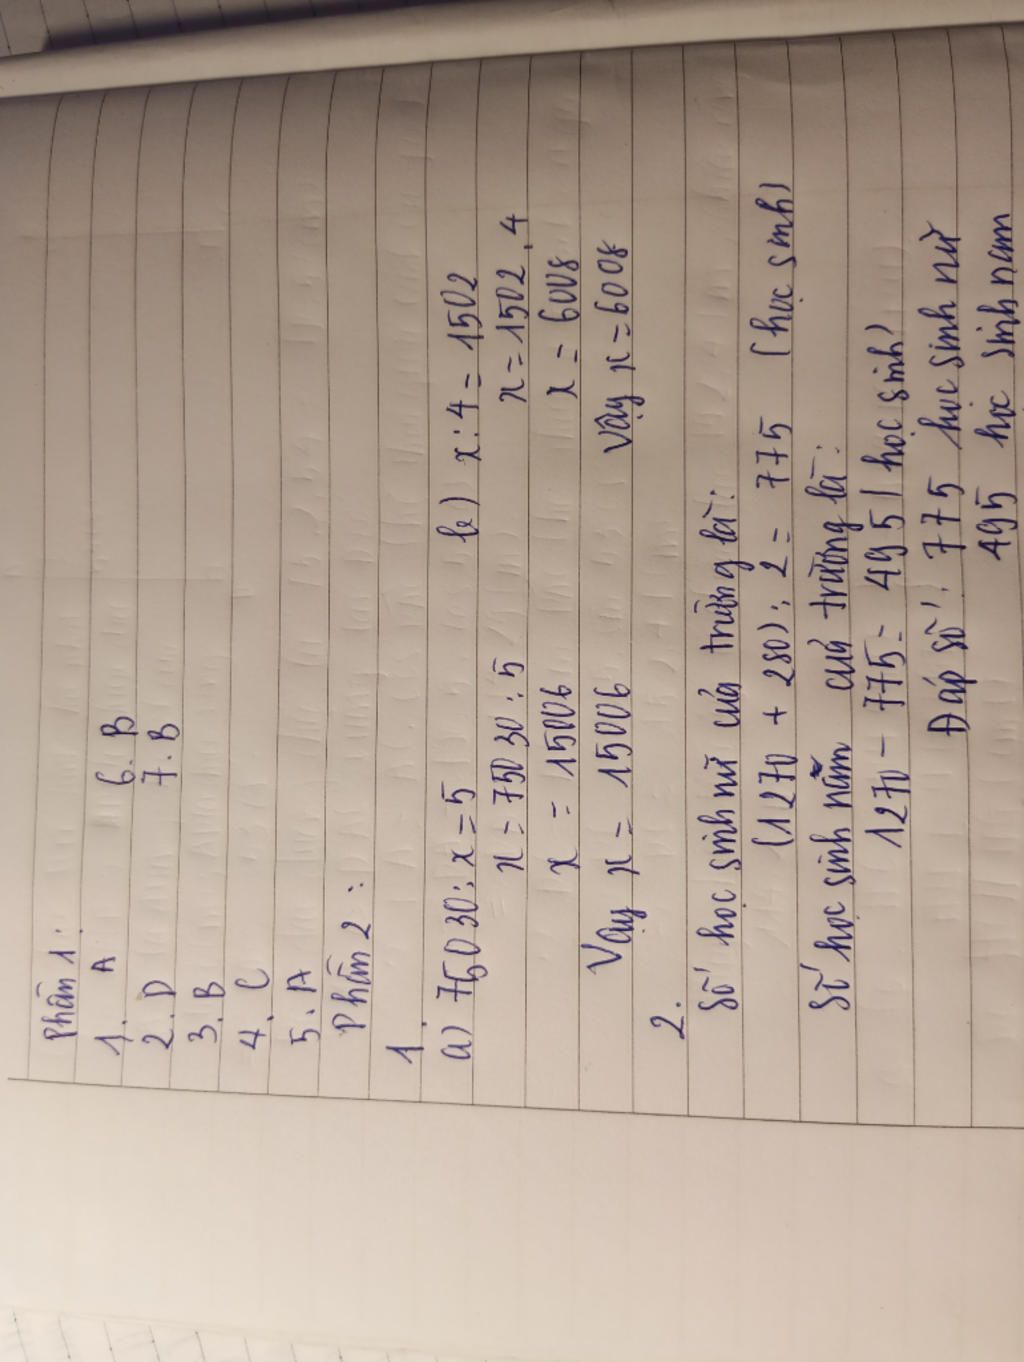 Phần 1:
1. A 6. B
2. D 7. B
3. B
4. C
5. A
Phần 2:
1.
a) 75030 : x = 5 b) x : 4 = 1502
x = 75030 : 5 x = 1502 . 4
x = 15006 x = 6008
Vậy x = 15006 Vậy x = 6008
2.
Số học sinh nữ của trường là:
(1270 + 280) : 2 = 775 (học sinh)
Số học sinh năm của trường là:
1270 - 775 = 495 (học sinh)
Đáp số: 775 học sinh nữ
495 học sinh nam